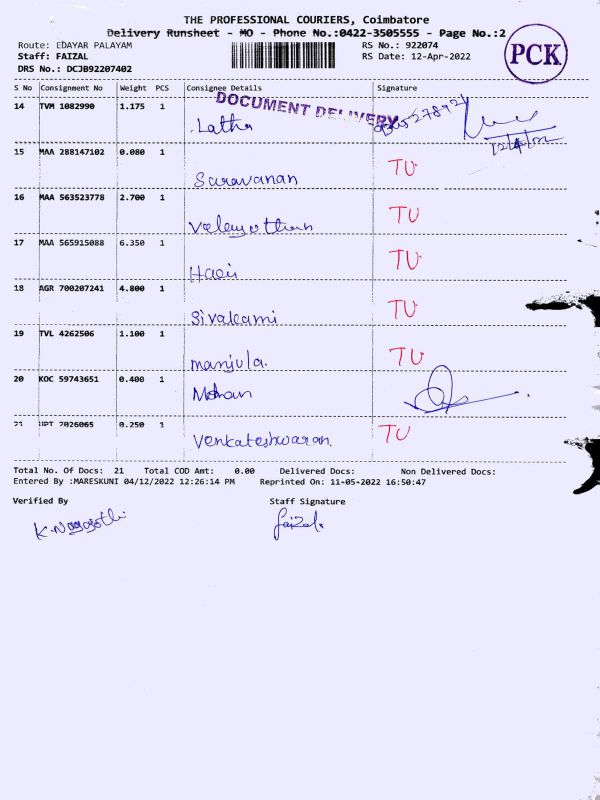 THE PROFESSIONAL COURIERS, Coimbatore
Delivery Runsheet - MO - Phone No.:0422-3505555 - Page No.:2
Route: EDAYAR PALAYAM
RS No.: 922074
PCK
Staff: FAIZAL
RS Date: 12-Apr-2022
DRS No.: DCJB92207402
S No Consignment No Weight PCS Consignee Details Signature
DOCUMENT DELIVERY
14 TVM 1082990 1.175 1
Latha
12/4/22
15 MAA 288147102 0.080 1
Saravanan TU
16 MAA 563523778 2.700 1
TU
17 MAA 565915088 6.350 1
Hari TU
18 AGR 700207241 4.800 1
Sivakami TU
19 TVL 4262506 1.100 1
manjula. TU
20 KOC 59743651 0.400 1
Mohan
21 UPT 7026065 0.250 1
Venkateshwaran. TU
Total No. Of Docs: 21 Total COD Amt: 0.00 Delivered Docs: Non Delivered Docs:
Entered By :MARESKUNI 04/12/2022 12:26:14 PM Reprinted On: 11-05-2022 16:50:47
Verified By Staff Signature
Faizal